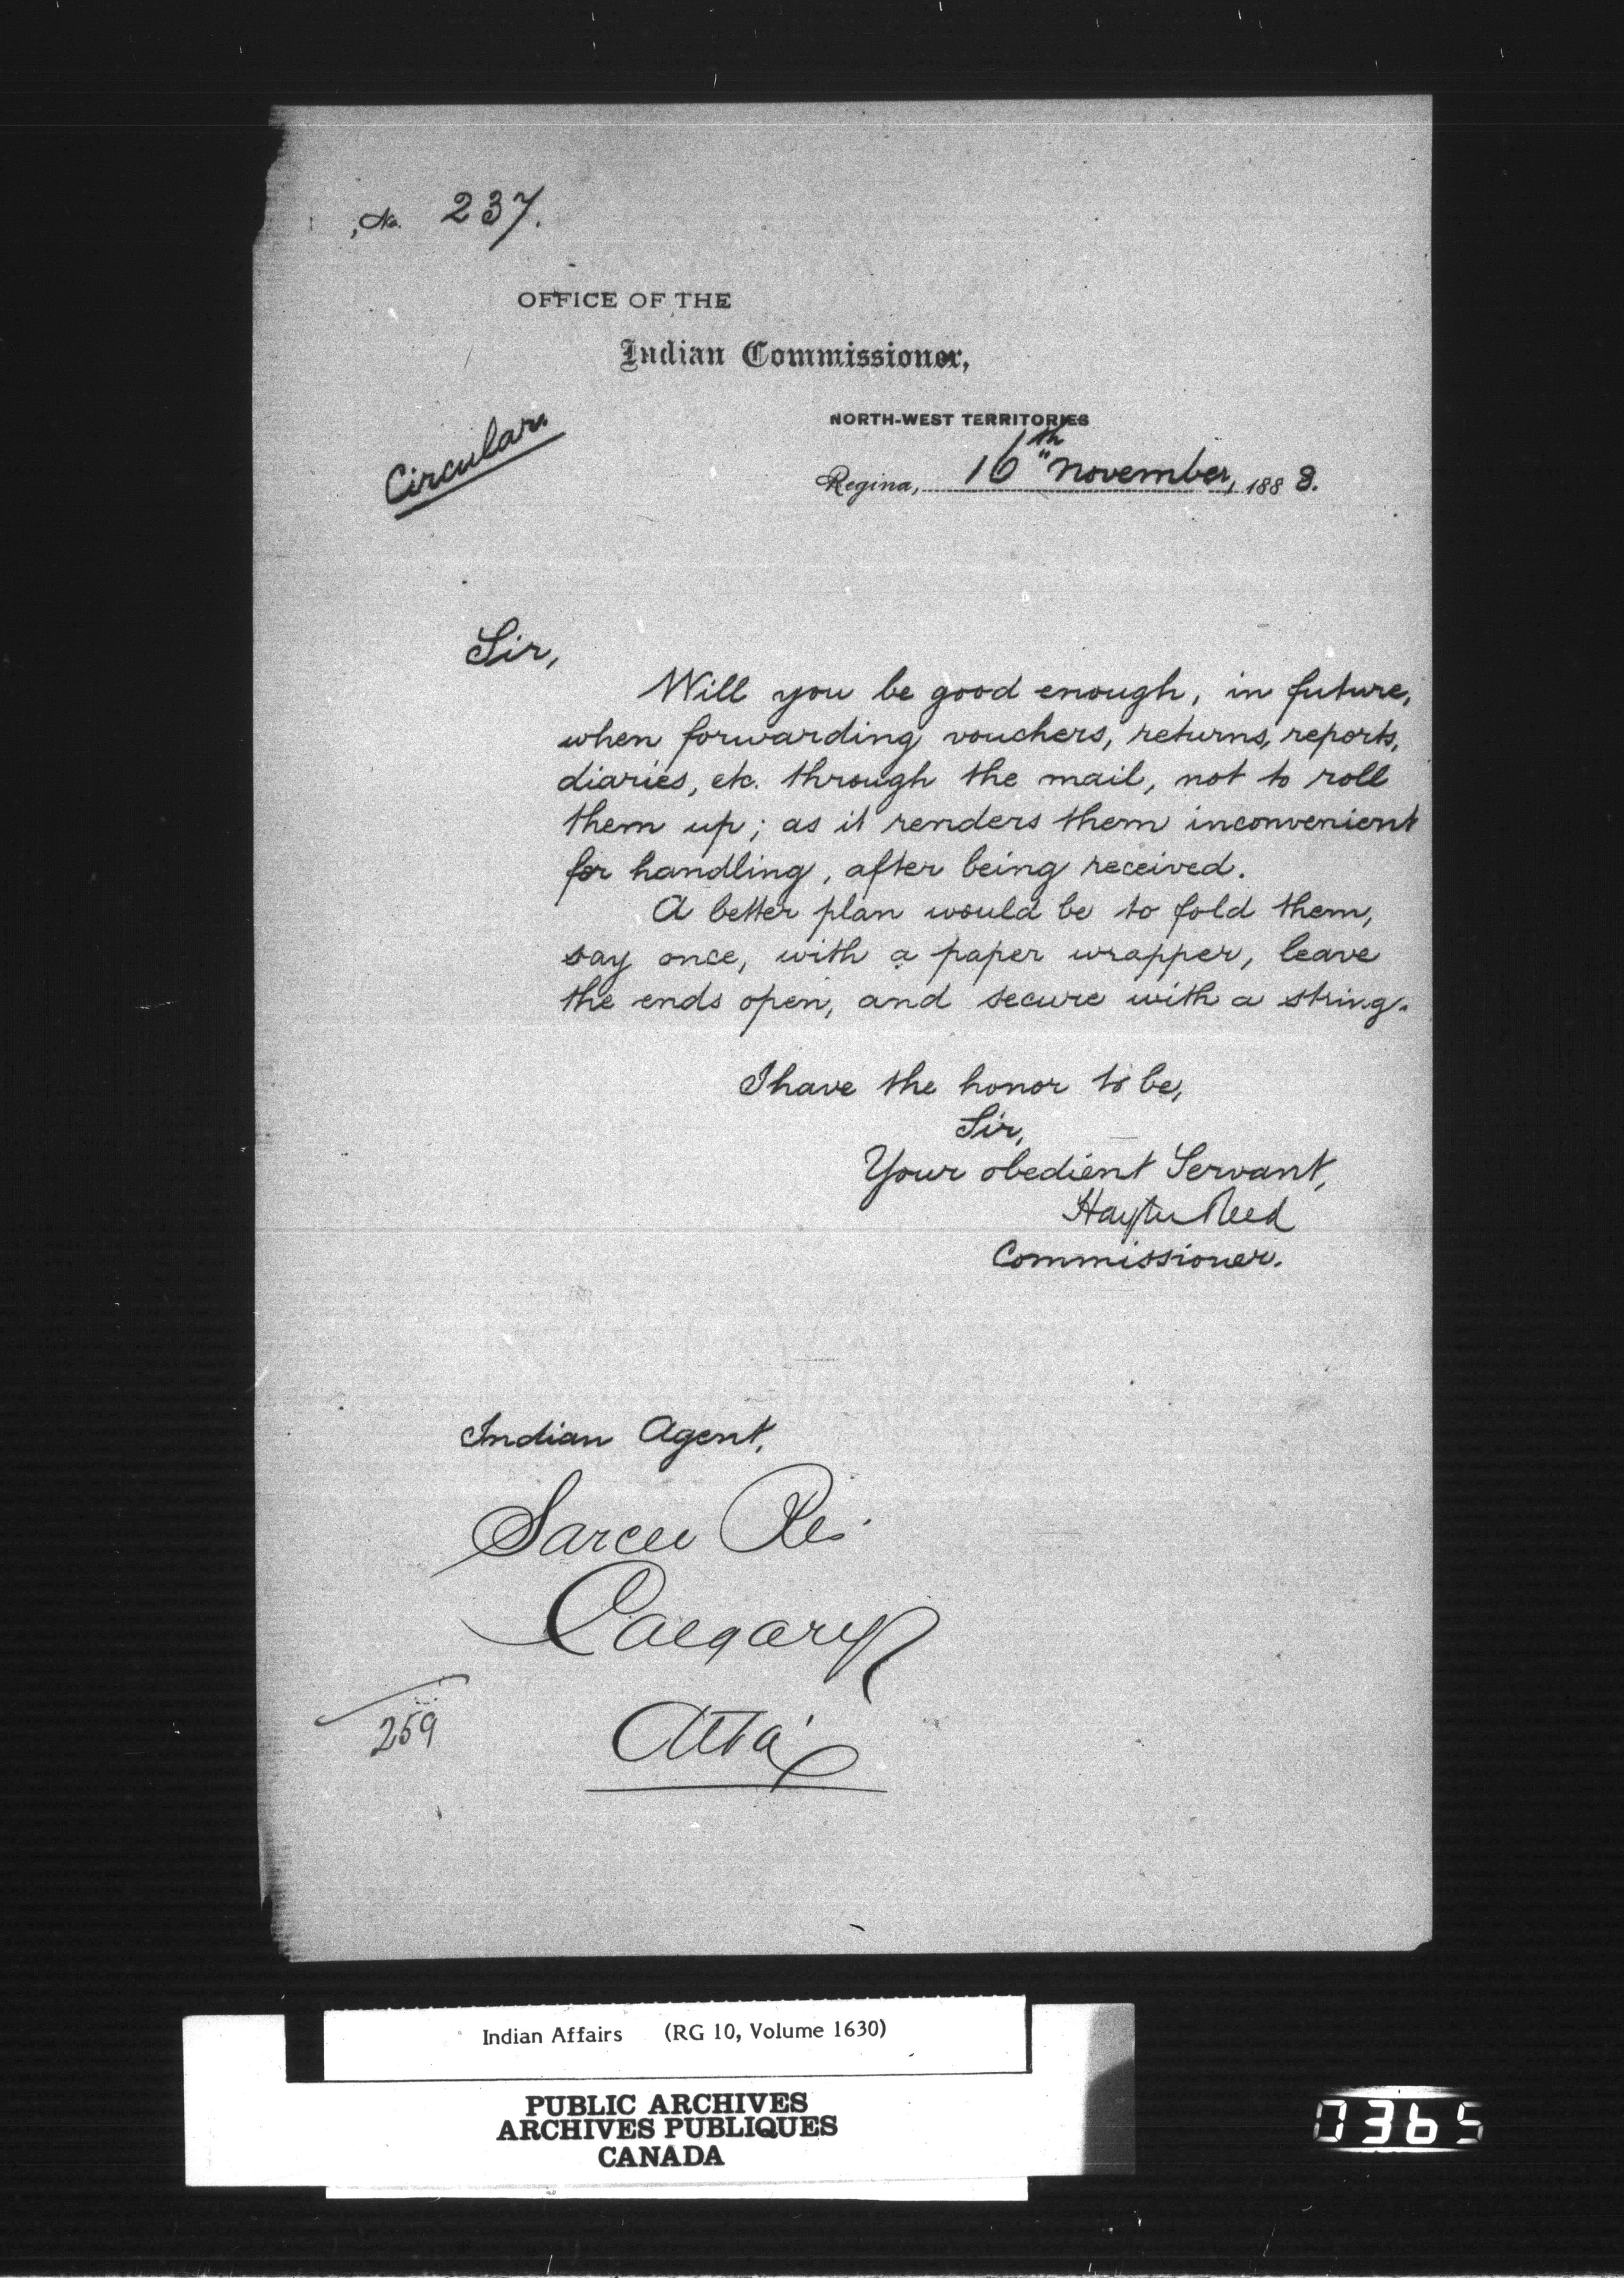 No. 237.
OFFICE OF THE
Indian Commissioner,
NORTH-WEST TERRITORIES
Circular.
Regina, 16th November, 1888.
Sir,
Will you be good enough, in future,
when forwarding vouchers, returns, reports,
diaries, etc. through the mail, not to roll
them up; as it renders them inconvenient
for handling, after being received.
A better plan would be to fold them,
say once, with a paper wrapper, leave
the ends open, and secure with a string.
I have the honor to be,
Sir,
Your obedient Servant,
Hayter Reed
Commissioner.
Indian Agent,
Sarcee Res.
Calgary
Alta
259
Indian Affairs (RG 10, Volume 1630)
PUBLIC ARCHIVES
ARCHIVES PUBLIQUES
CANADA
0365